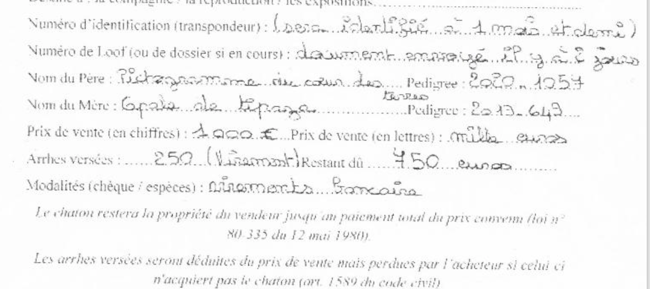 Destiné à : la compagnie / la reproduction / les expositions
Numéro d'identification (transpondeur) : (sera identifié à 1 mois et demi)
Numéro de Loof (ou de dossier si en cours) : document envoyé il y a 2 jours
Nom du Père : Pictogramme du cœur des terres Pedigree : 2020-1057
Nom du Mère : Opale de tipaza Pedigree : 2013-649
Prix de vente (en chiffres) : 1000 € Prix de vente (en lettres) : mille euros
Arrhes versées : 250 (Virement) Restant dû 750 euros
Modalités (chèque / espèces) : virements bancaire
Le chaton restera la propriété du vendeur jusqu au paiement total du prix convenu (loi n°
80.335 du 12 mai 1980).
Les arrhes versées seront déduites du prix de vente mais perdues par l'acheteur si celui ci
n'acquiert pas le chaton (art. 1589 du code civil)